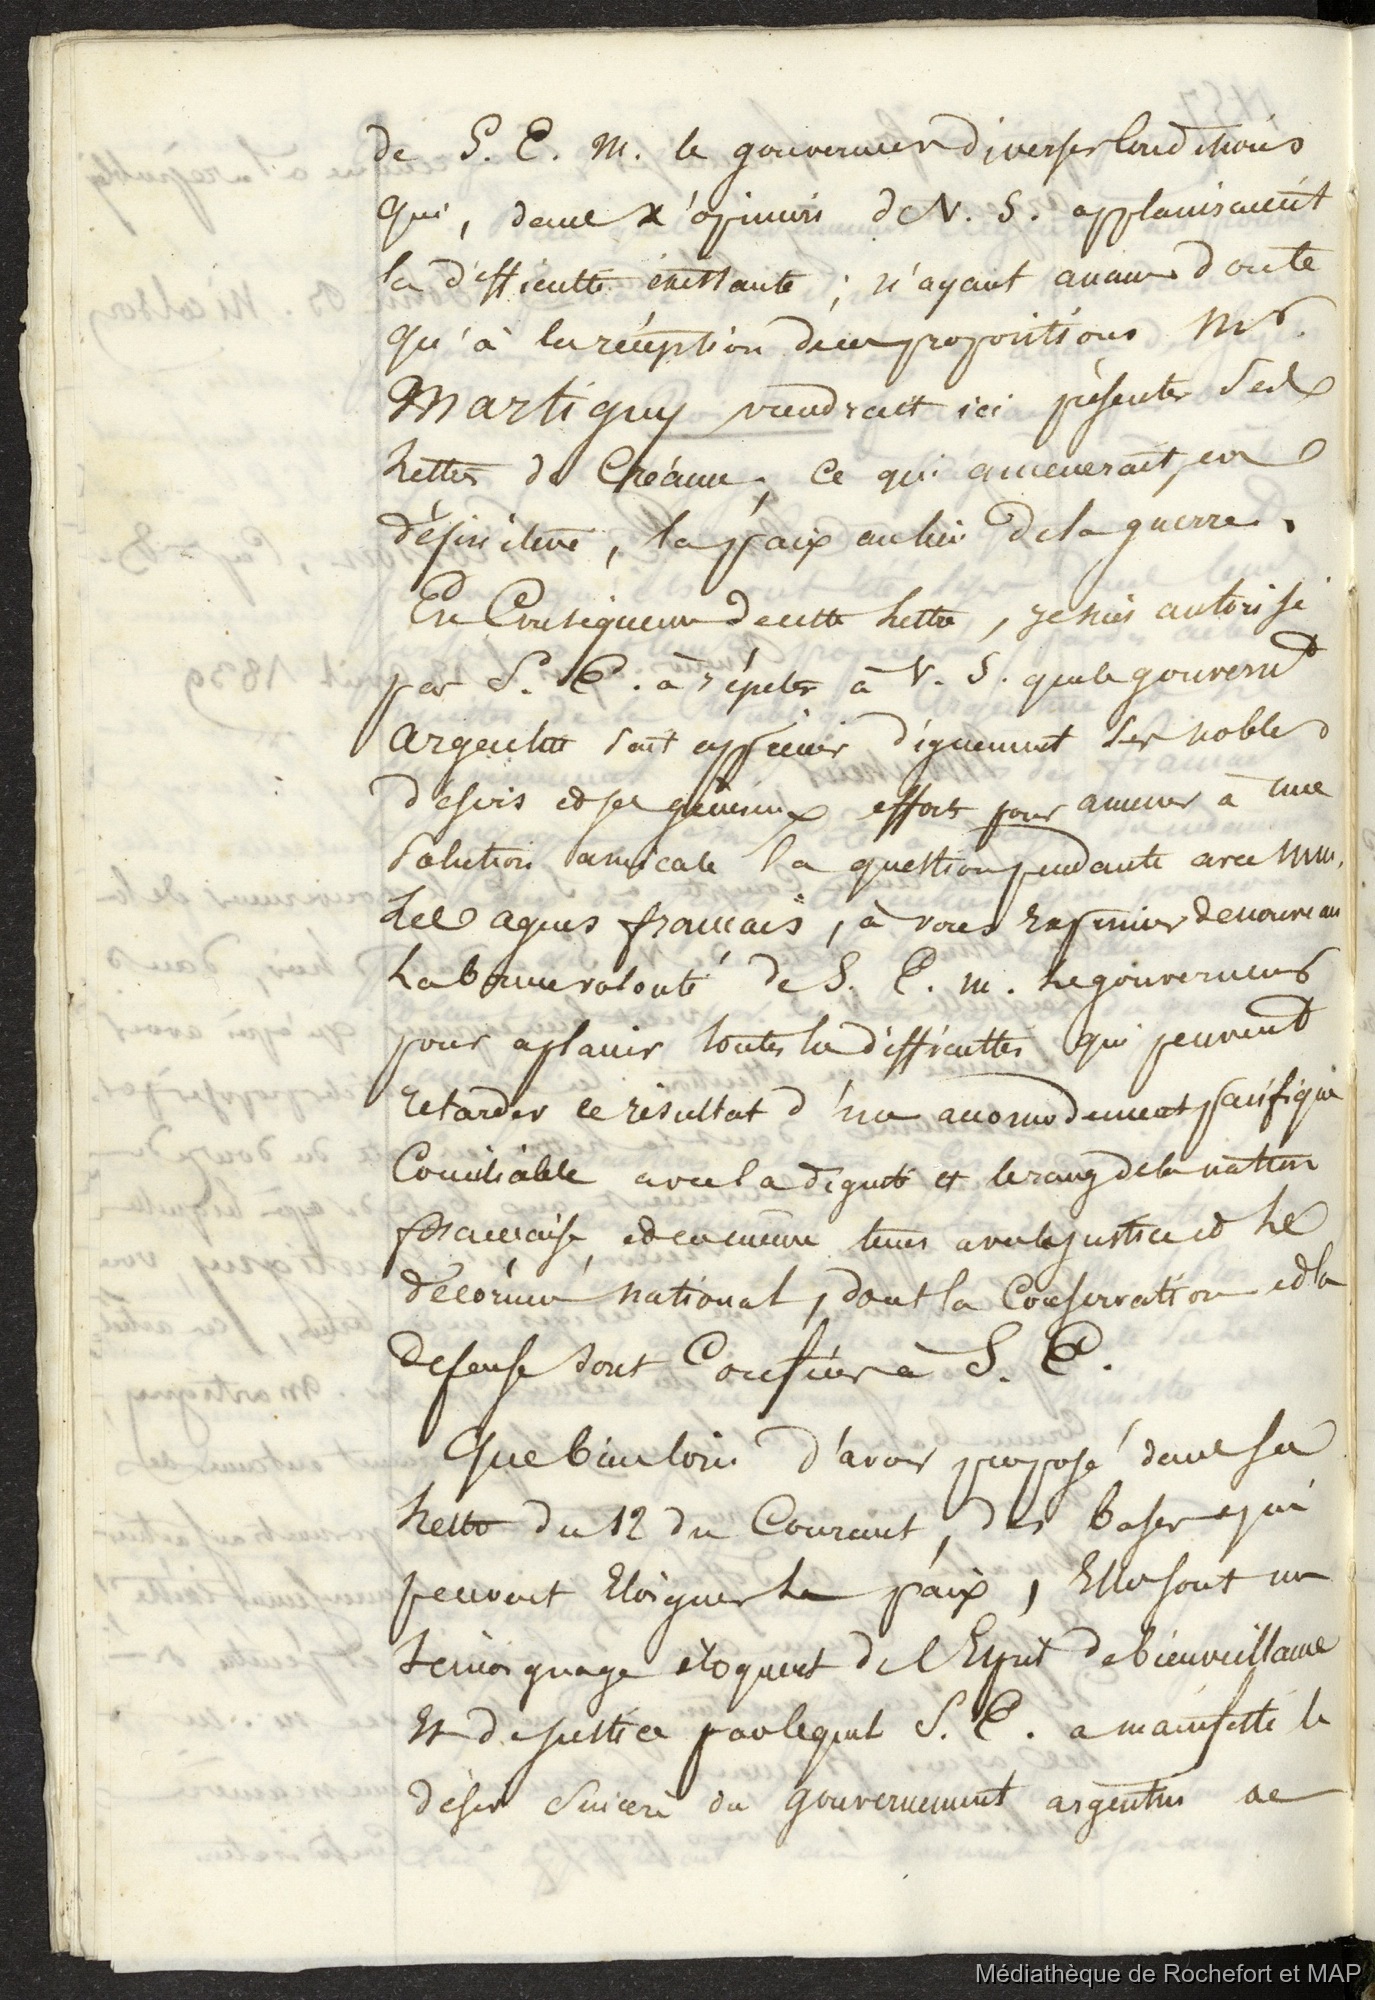 de S. E. M. le gouverneur diverses Conditions
qui, dans l'opinion de V. S. applanissaient
la difficulté existante ; n'ayant aucun doute
qu'à la réception de ces propositions Mr.
Martigny viendrait ici présenter Ses
Lettres de Créance ; Ce qui amenerait, en
définitive, la paix au lieu de la guerre.
En Conséquence de cette Lettre, je suis autorisé
par S. E. à répéter à V. S. que le gouvernt
argentin sait apprécier dignement Ses nobles
désirs et ses généreux efforts pour amener à une
Solution amicale la question pendante avec MM.
Les agens français, à vous exprimer de nouveau
La bonne volonté de S. E. M. Le gouverneur
pour aplanir toutes les difficultés qui peuvent
retarder le résultat d'un accomodement pacifique
Conciliable avec la dignité et le rang de la nation
française, et en même tems avec la justice et Le
décorum national, dont la Conservation et la
défense sont Confiées à S. E.
Que bien loin d'avoir proposé dans sa
Lettre du 12 du Courant, des bases qui
peuvent Eloigner La paix, Elles sont un
témoignage éloquent de l'Esprit de bienveillance
Et de justice par lequel S. E. a manifesté le
désir Sincère du gouvernement argentin de
Médiathèque de Rochefort et MAP